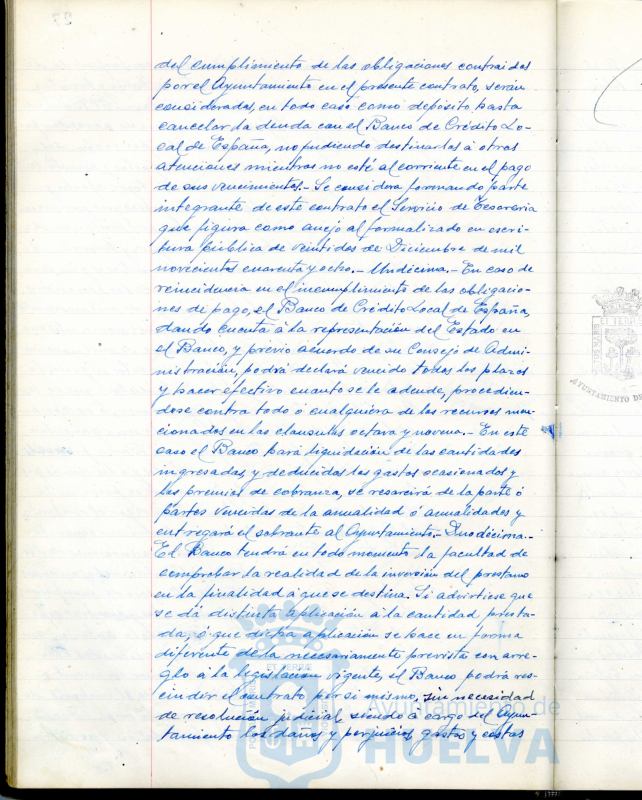 del cumplimiento de las obligaciones contraidas
por el Ayuntamiento en el presente contrato, serán
consideradas, en todo caso como depósito hasta
cancelar la deuda con el Banco de Crédito Lo-
cal de España, no pudiendo destinarlos á otras
atenciones mientras no esté al corriente en el pago
de sus vencimientos.- Se considera formando parte
integrante de este contrato el Servicio de Tesoreria
que figura como anejo al formalizado en escri-
tura pública de veintidos de Diciembre de mil
novecientos cuarenta y ocho.- Undécima.- En caso de
reincidencia en el incumplimiento de las obligacio-
nes de pago, el Banco de Crédito Local de España,
dando cuenta á la representación del Estado en
el Banco, y previo acuerdo de su Consejo de Admi-
nistración, podrá declará vencido todos los plazos
y hacer efectivo cuanto se le adeude, procedien-
dose contra todo ó cualquiera de los recursos men-
cionados en las clausulas octava y novena.- En este
caso el Banco hará liquidación de las cantidades
ingresadas, y deducidos los gastos ocasionados y
los premios de cobranza, se resarcirá de la parte ó
partes vencidas de la anualidad ó anualidades y
entregará el sobrante al Ayuntamiento.- Duodécima.-
El Banco tendrá en todo momento la facultad de
comprobar la realidad de la inversión del prestamo
en la finalidad á que se destina. Si advirtiese que
se dá distinta aplicación á la cantidad presta-
da, ó que dicha aplicación se hace en forma
diferente de la necesariamente prevista con arre-
glo á la legislación vigente, el Banco podrá res-
cindir el contrato por si mismo, sin necesidad
de resolución judicial, siendo á cargo del Ayun-
tamiento los daños y perjuicios, gastos y costas
Ayuntamiento de
HUELVA
AYUNTAMIENTO DE